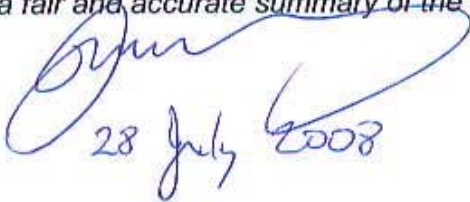 a fair and accurate summary of the
28 July 2008